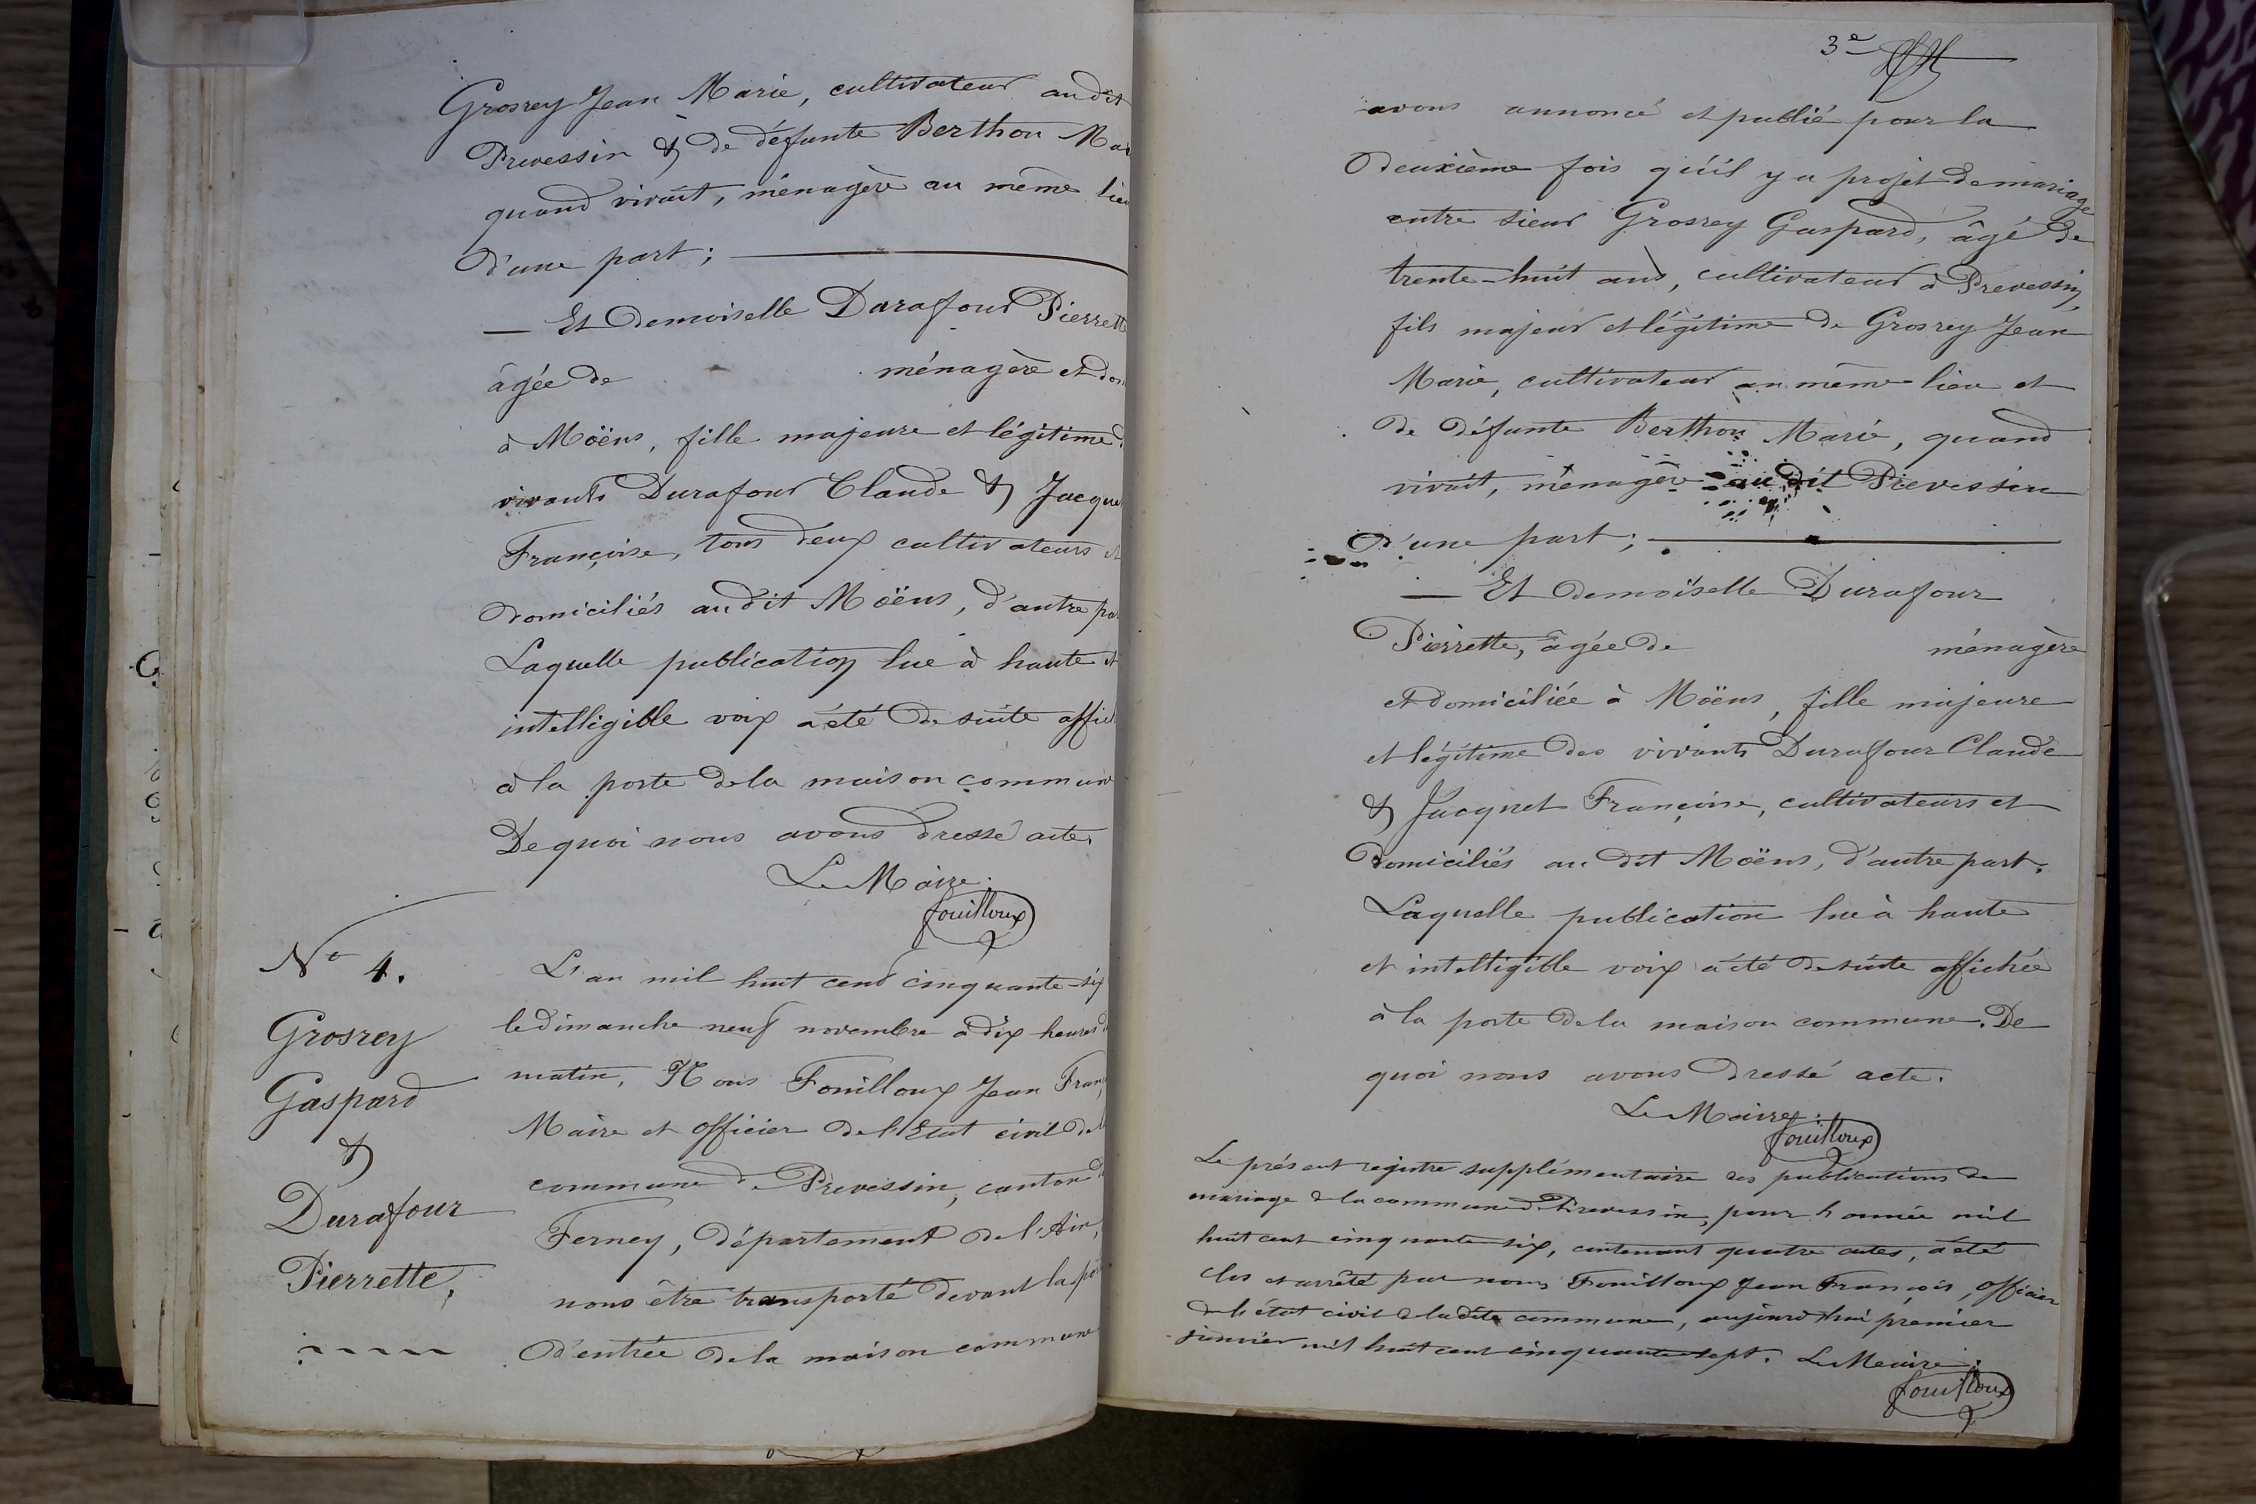 Grosrey Jean Marie, cultivateur audit
Prevessin & de défunte Berthon Mar
quand vivait, ménagère au même lieu
d'une part;
— Et demoiselle Durafour Pierrette
âgée de ménagère et dom
à Moëns, fille majeure et légitime d
vivants Durafour Claude & Jacque
Françoise, tous deux cultivateurs et
domiciliés audit Moëns, d'autre pa
Laquelle publication lue à haute et
intelligible voix a été de suite affich
à la porte de la maison commune
De quoi nous avons dressé acte.
Le Maire.
Fouilloux
No 4.
Grosrey
Gaspard
&
Durafour
Pierrette,
L'an mil huit cent cinquante-six
le dimanche neuf novembre à dix heures d
matin, Nous Fouilloux Jean Franç
Maire et officier de l'Etat civil de l
commune de Prevessin, canton d
Ferney, département de l'Ain,
nous être transporté devant la po
d'entrée de la maison commune
3e
avons annoncé et publié pour la
deuxième fois qu'il y a projet de mariage
entre sieur Grosrey Gaspard, âgé de
trente-huit ans, cultivateur à Prevessin,
fils majeur et légitime de Grosrey Jean
Marie, cultivateur au même lieu et
de défunte Berthon Marie, quand
vivait, ménagère au dit Prevessin
d'une part;
— Et demoiselle Durafour
Pierrette, âgée de ménagère
et domiciliée à Moëns, fille majeure
et légitime des vivants Durafour Claude
& Jacquet Françoise, cultivateurs et
domiciliés au dit Moëns, d'autre part.
Laquelle publication lue à haute
et intelligible voix a été de suite affichée
à la porte de la maison commune. De
quoi nous avons dressé acte.
Le Maire.
Fouilloux
Le présent registre supplémentaire des publications de
mariage de la commune de Prevessin, pour l'année mil
huit cent cinquante six, contenant quatre actes, a été
clos et arrêté par nous Fouilloux Jean François, officier
de l'état civil de ladite commune, aujourd'hui premier
janvier mil huit cent cinquante sept. Le Maire.
Fouilloux